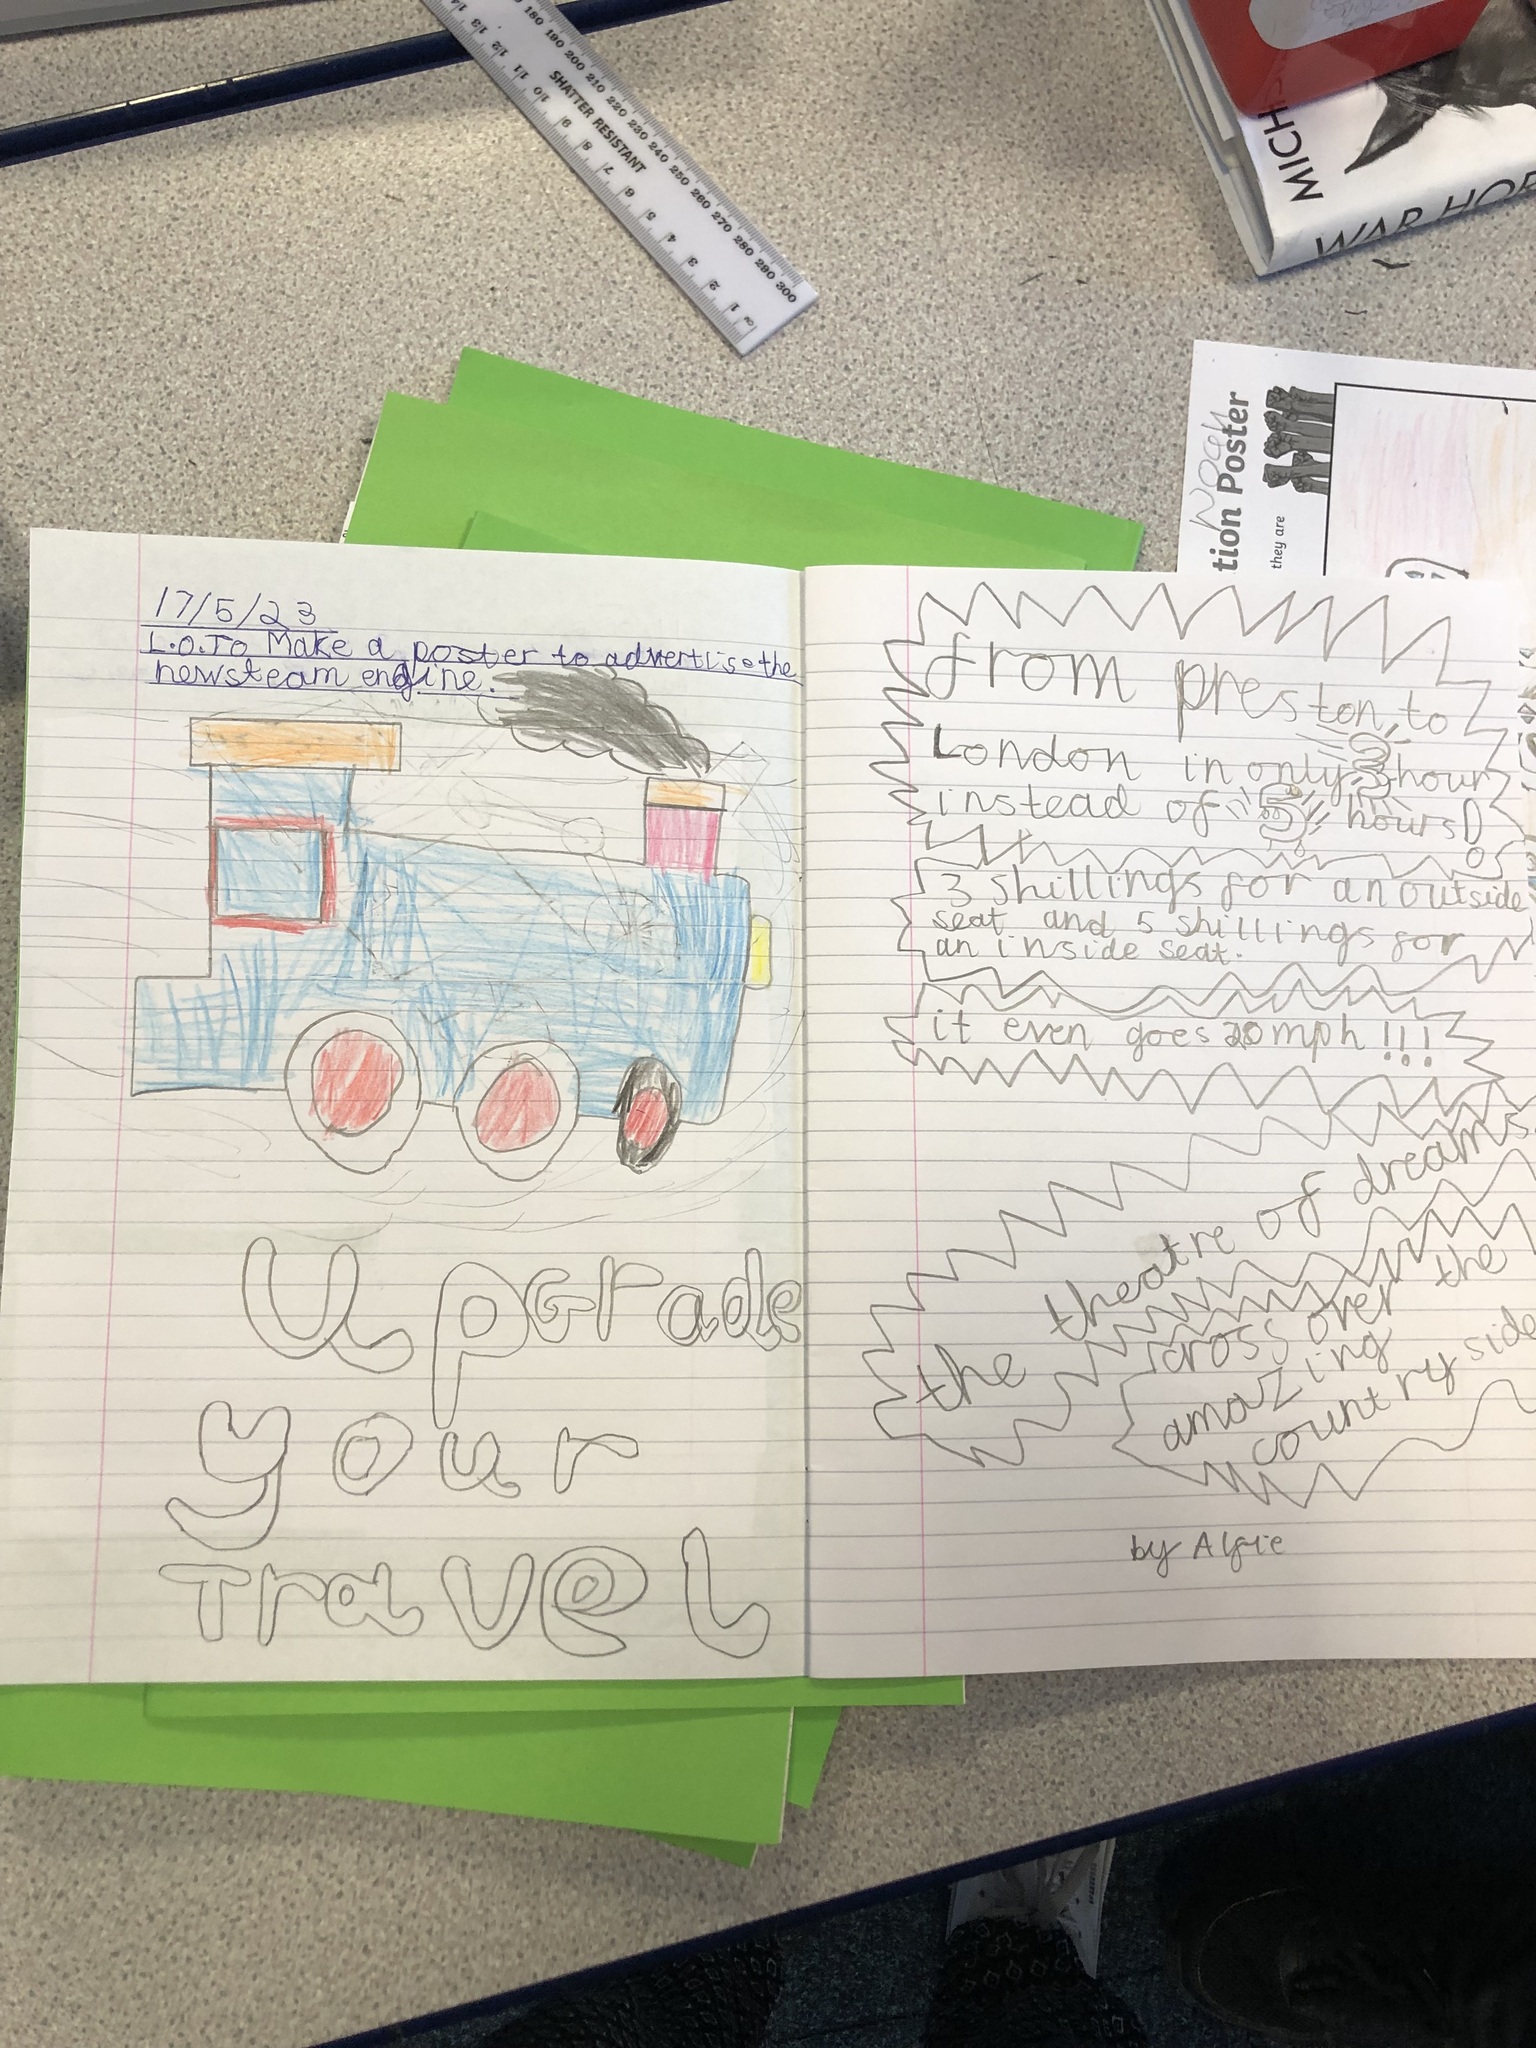 180 190 200 210 220 230 240 250 260 270 280 290 300
SHATTER RESISTANT
14 13 12 11 10 9 8 7 6 5 4 3 2 1 cm
MICH
WAR HOR
Noah
tion Poster
they are
17/5/23
L.O.To Make a poster to advertise the
new steam engine.
upGrade
your
Travel
from preston, to
London in only 3 hour
instead of 5 hours!
3 shillings for an outside
seat and 5 shillings for
an inside seat.
it even goes 20 mph!!!
the theatre of dreams.
cross over the
amazing
country side
by Alfie